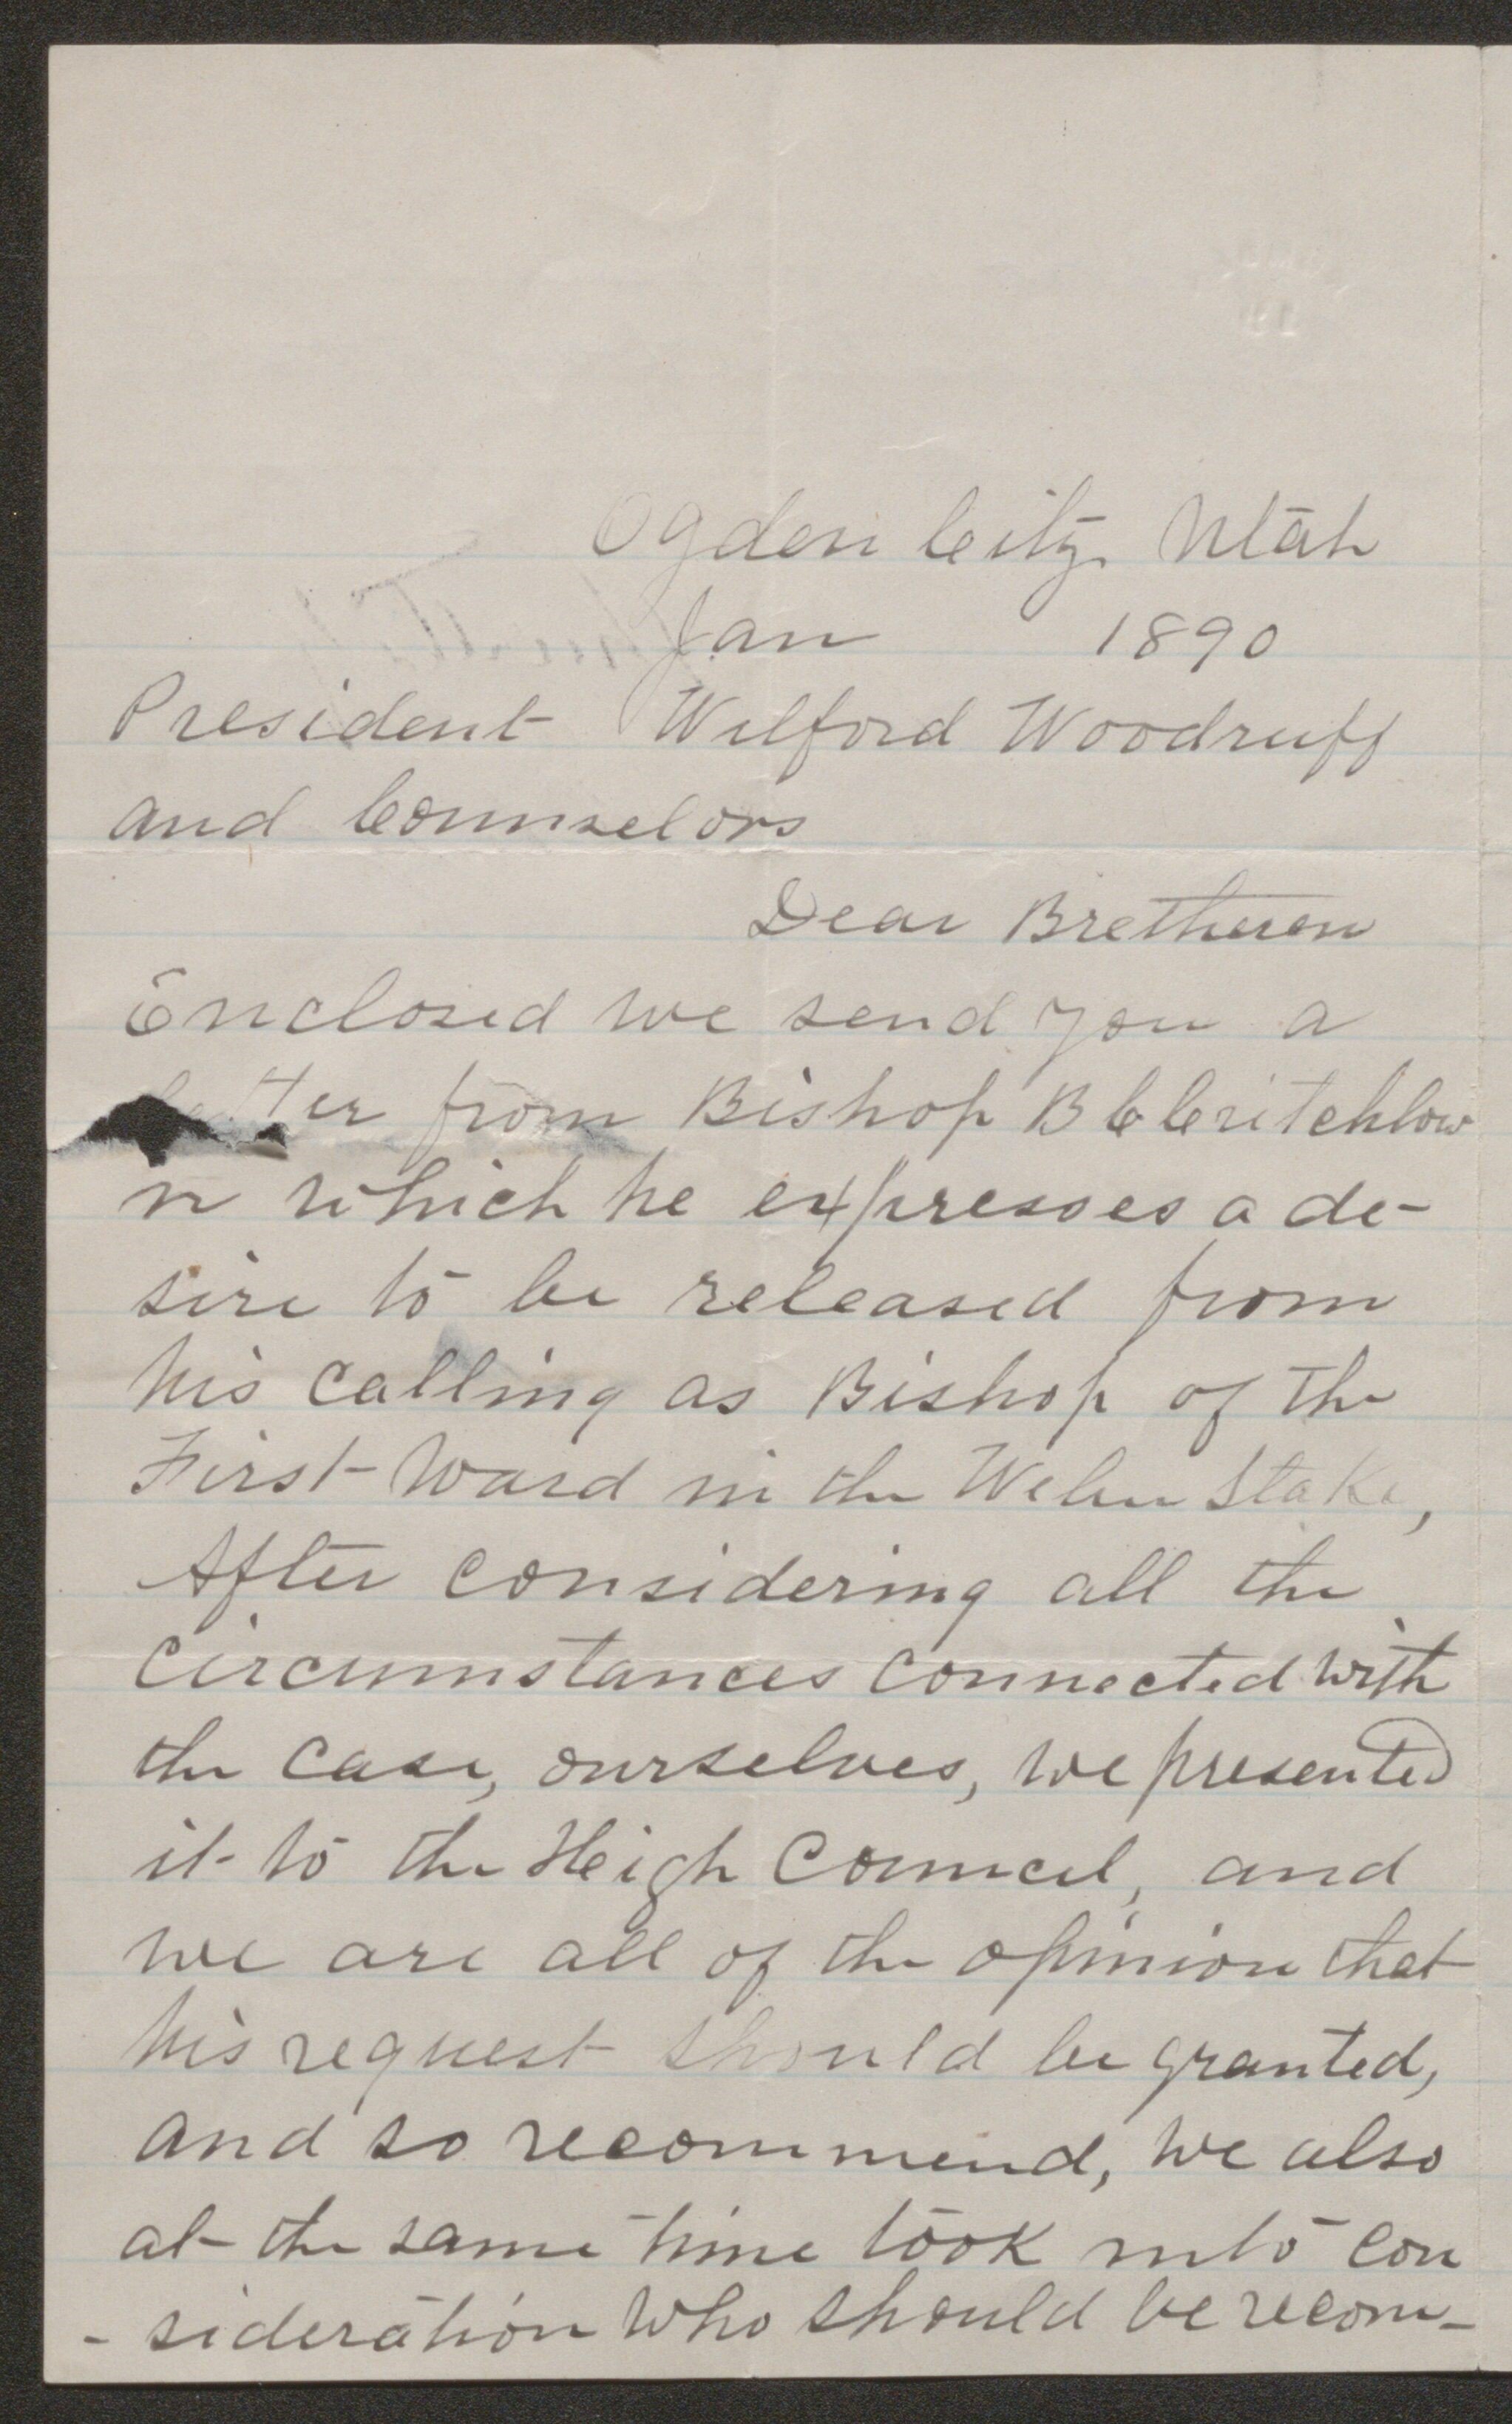 Ogden City Utah
Jan 1890
President Wilford Woodruff
and Counselors
Dear Bretheren
Enclosed we send you a
letter from Bishop B C Critchlow
in which he expresses a de-
sire to be released from
his calling as Bishop of the
First Ward in the Weber Stake,
After considering all the
circumstances connected with
the case, ourselves, we presented
it to the High Council, and
we are all of the opinion that
his request should be granted,
and so recommend, we also
at the same time took into con
- sideration who should be recom-